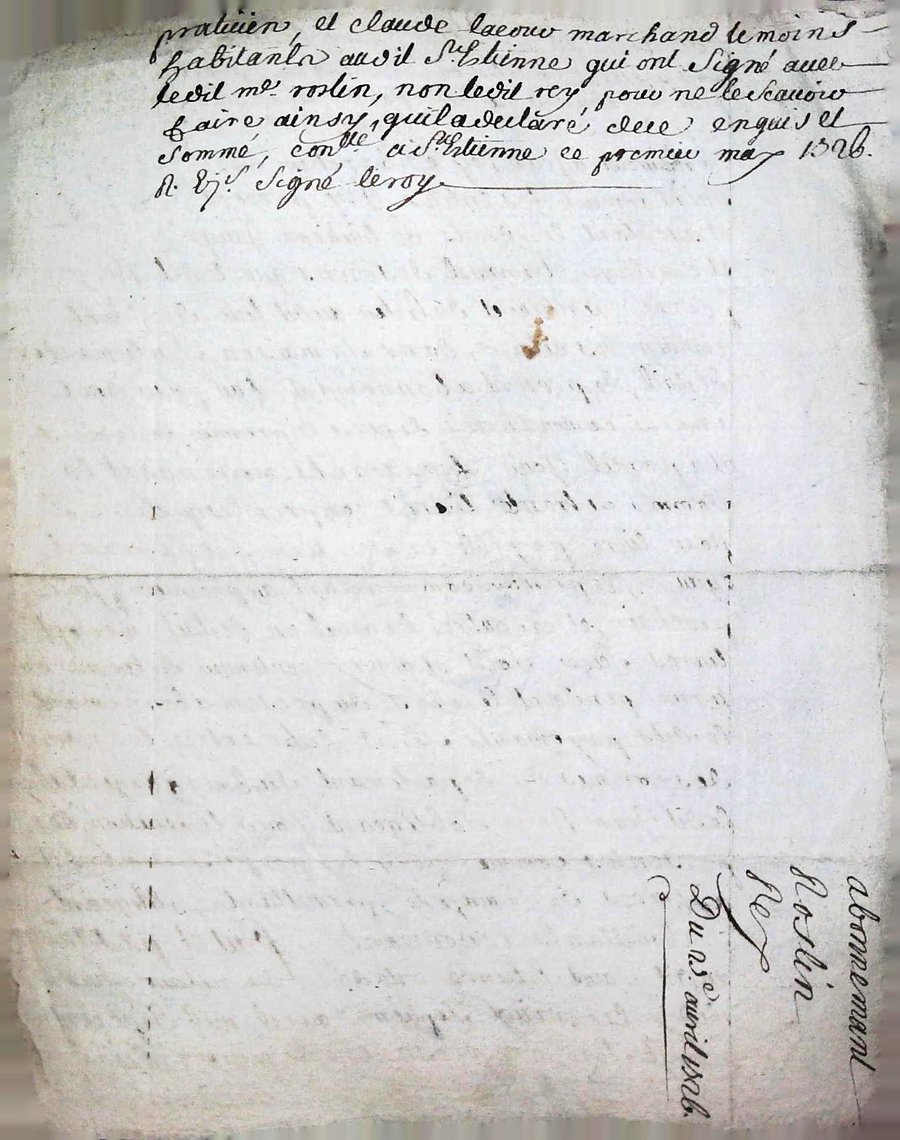 praticien, et claude lacour marchand temoins
habitants audit St. Etienne qui ont signé avec
ledit me. roslin, non ledit rey pour ne le scavoir
faire ainsy, qu'il a declaré de ce enquis et
sommé, conlle. a St. Etienne ce premier may
R. signé leroy
abonnemant
Roslin
Rey
Du avril